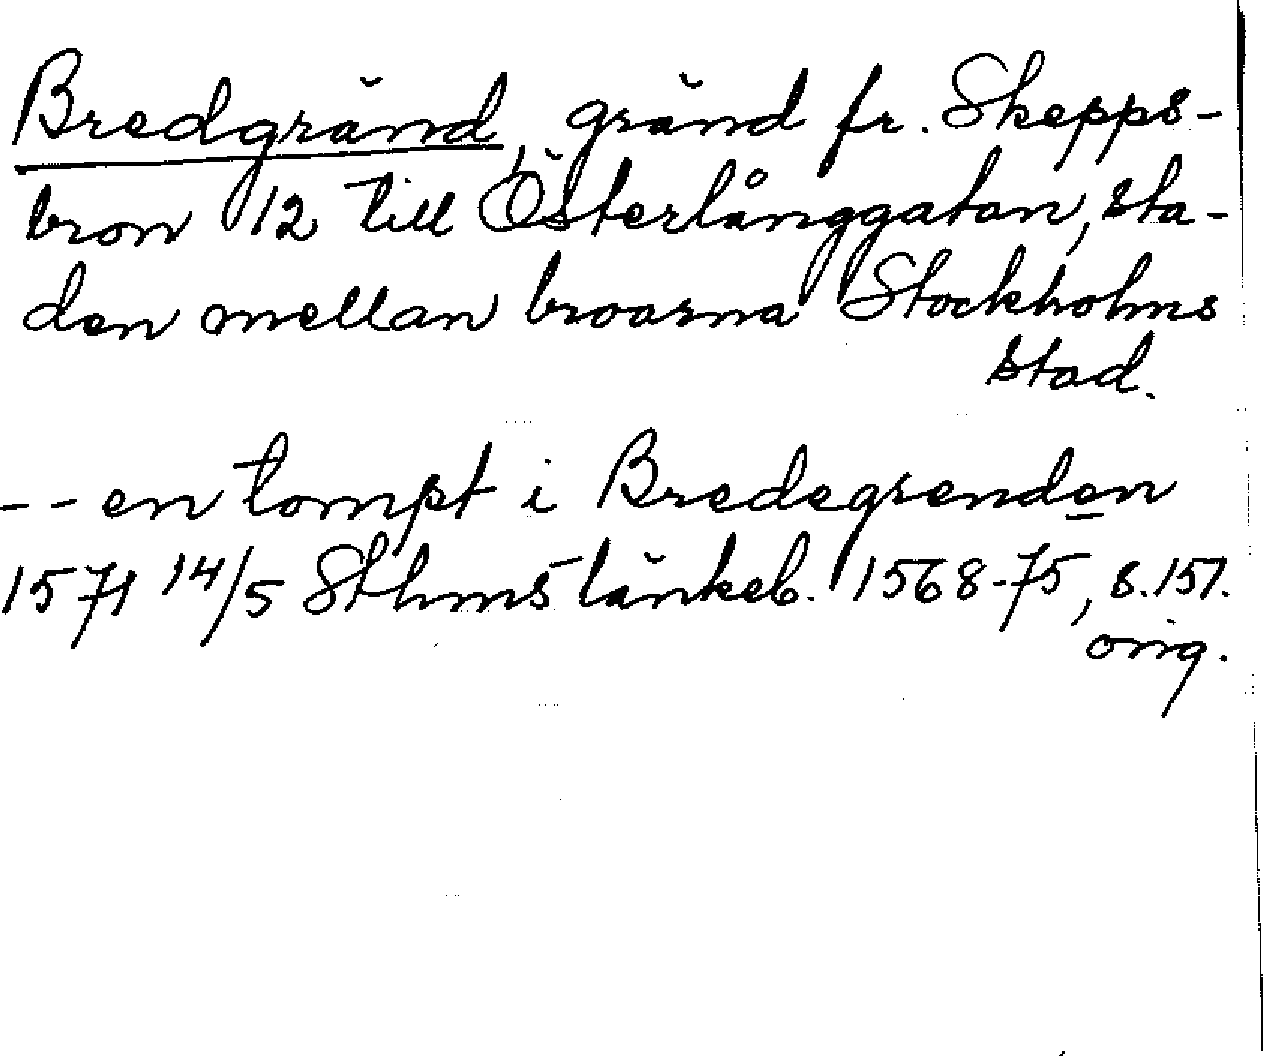 Bredgränd, gränd fr. Skepps-
bron 12 till Österlånggatan, sta-
den mellan broarna Stockholms
stad.
-- en tompt i Bredegrenden
1571 14/5 Sthms tänkeb. 1568-75, s. 157.
orig.